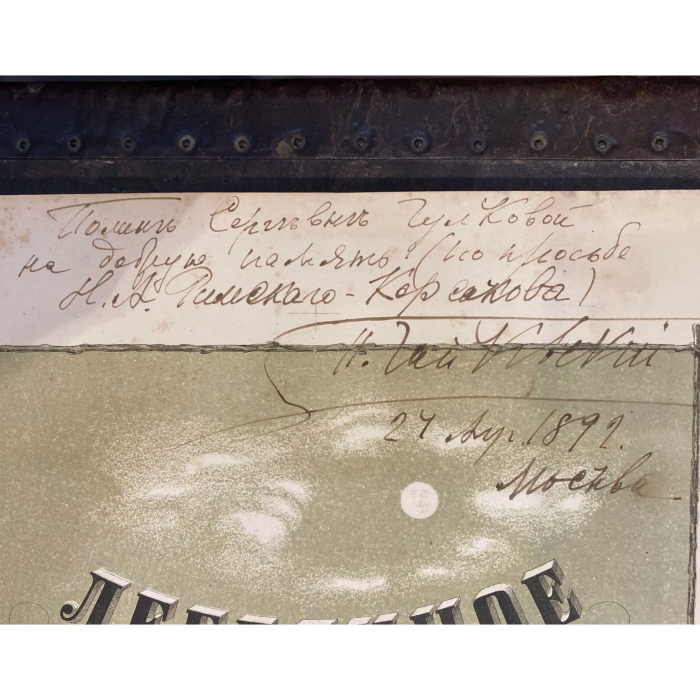 Полинѣ Сергѣевнѣ Гулковой
на добрую память (по просьбе
Н. А. Римскаго-Корсакова)
П. Чайковскій
Апр. 189
Москва